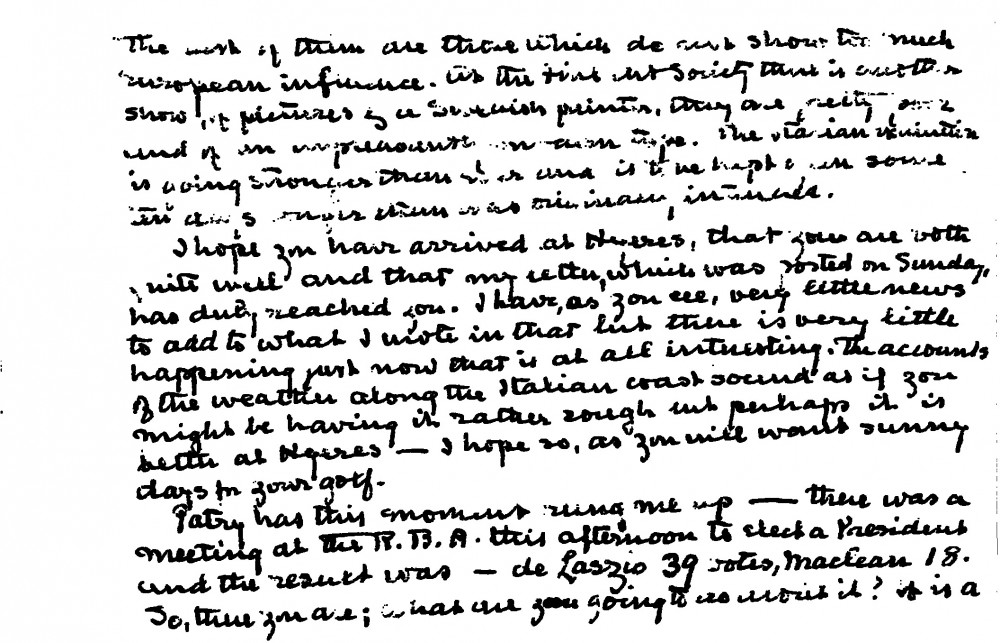 The most of them are those which do not show too much
European influence. At the Fine Art Society there is another
show, of pictures by a Swedish painter, they are pretty
and of an unpleasant modern type. The Italian Exhibition
is going stronger than ever and is to be kept on some
ten days longer than was originally intended.
I hope you have arrived at Hyeres, that you are both
quite well and that my letter, which was posted on Sunday,
has duly reached you. I have, as you see, very little news
to add to what I wrote in that but there is very little
happening just now that is at all interesting. The accounts
of the weather along the Italian coast sound as if you
might be having it rather rough but perhaps it is
better at Hyeres — I hope so, as you will want sunny
days for your golf.
Patry has this moment rung me up — there was a
meeting at the R.B.A. this afternoon to elect a President
and the result was — de Laszlo 39 votes, Maclean 18.
So, there you are; what are you going to do about it? it is a